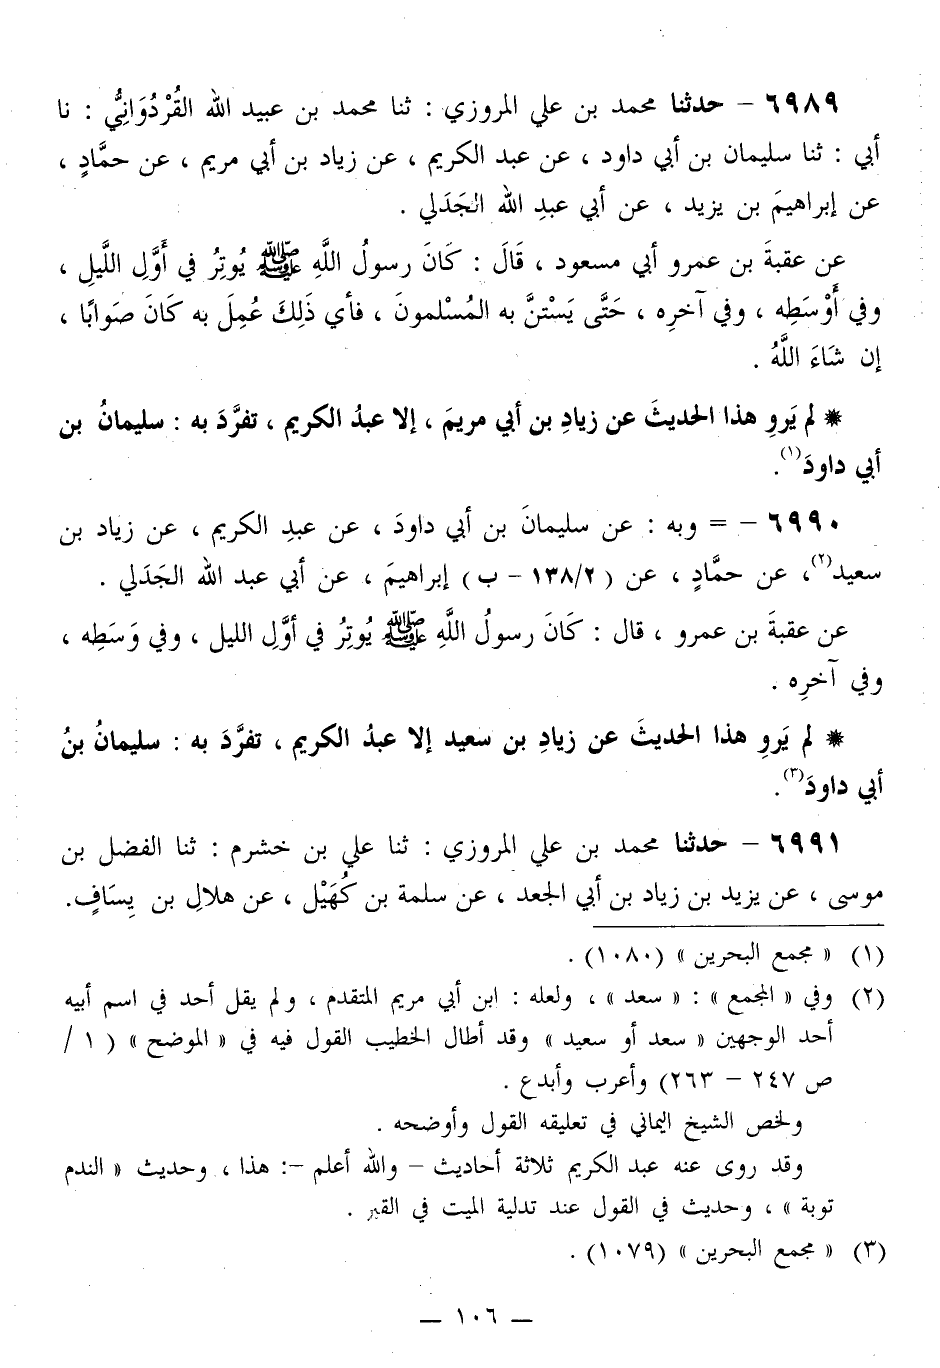 ٦٩٨٩ – حدثنا محمد بن علي المروزي : ثنا محمد بن عبيد الله القُرْدُوَانِيُّ : نا
أبي : ثنا سليمان بن أبي داود ، عن عبد الكريم ، عن زياد بن أبي مريم ، عن حمَّادٍ ،
عن إبراهيمَ بن يزيد ، عن أبي عبدِ الله الجَدَلي .
عن عقبةَ بن عمرو أبي مسعود ، قَالَ : كَانَ رسولُ اللَّهِ ﷺ يُوتِرُ في أَوَّلِ اللَّيلِ ،
وفي أَوْسَطِه ، وفي آخرِه ، حَتَّى يَسْتنَّ به المُسْلمونَ ، فأي ذَلِكَ عُمِلَ به كَانَ صَوابًا ،
إن شَاءَ اللَّهُ .
* لم يَروِ هذا الحديثَ عن زيادِ بن أبي مريمَ ، إلا عبدُ الكريم ، تفرَّدَ به : سليمانُ بن
أبي داودَ(١).
٦٩٩٠ – = وبه : عن سليمانَ بن أبي داودَ ، عن عبدِ الكريم ، عن زياد بن
سعيد(٢)، عن حمَّادٍ ، عن ( ١٣٨/٢ – ب ) إبراهيمَ ، عن أبي عبد الله الجَدَلي .
عن عقبةَ بن عمرو ، قال : كَانَ رسولُ اللَّهِ ﷺ يُوتِرُ في أوَّلِ الليل ، وفي وَسَطِه ،
وفي آخرِه .
* لم يَروِ هذا الحديثَ عن زيادِ بن سعيد إلا عبدُ الكريم ، تفرَّدَ به : سليمانُ بنُ
أبي داودَ(٣).
٦٩٩١ – حدثنا محمد بن علي المروزي : ثنا علي بن خشرم : ثنا الفضل بن
موسى ، عن يزيد بن زياد بن أبي الجعد ، عن سلمة بن كُهَيْل ، عن هلالِ بن يِسَافٍ.
(١) « مجمع البحرين » (١٠٨٠) .
(٢) وفي « المجمع » : « سعد » ، ولعله : ابن أبي مريم المتقدم ، ولم يقل أحد في اسم أبيه
أحد الوجهين « سعد أو سعيد » وقد أطال الخطيب القول فيه في « الموضح » ( ١ /
ص ٢٤٧ – ٢٦٣) وأعرب وأبدع .
ولخص الشيخ اليماني في تعليقه القول وأوضحه .
وقد روى عنه عبد الكريم ثلاثة أحاديث – والله أعلم –: هذا ، وحديث « الندم
توبة » ، وحديث في القول عند تدلية الميت في القبر .
(٣) « مجمع البحرين » (١٠٧٩) .
— ١٠٦ —